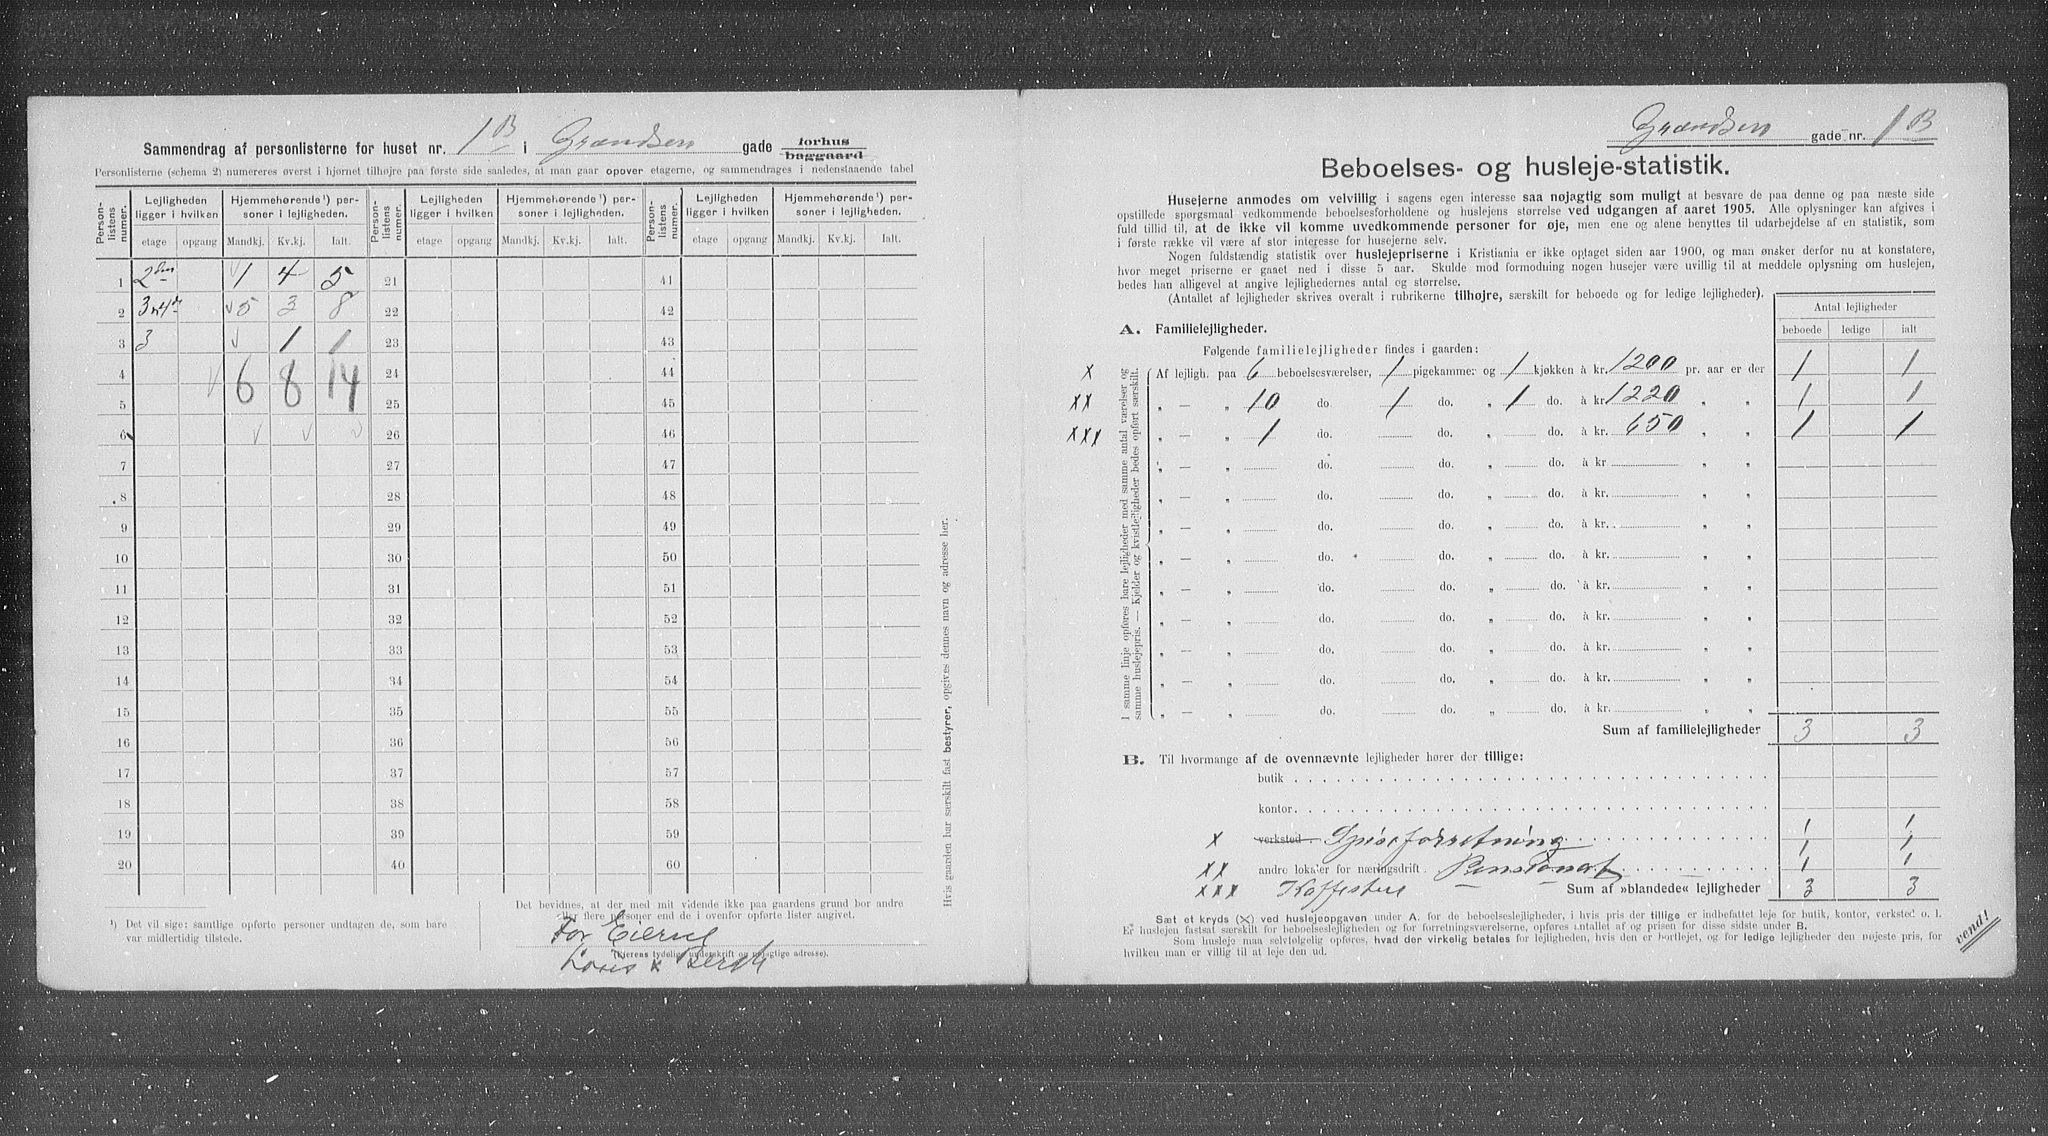 Sammendrag af personlisterne for huset nr. 1 B i Grændsen gade forhus
baggaard
Personlisterne (schema 2) numereres øverst i hjørnet tilhøjre paa første side saaledes, at man gaar opover etagerne, og sammendrages i nedenstaaende tabel
Person-listens numer. Lejligheden ligger i hvilken Hjemmehørende¹) personer i lejligheden. Person-listens numer. Lejligheden ligger i hvilken Hjemmehørende¹) personer i lejligheden. Person-listens numer. Lejligheden ligger i hvilken Hjemmehørende¹) personer i lejligheden.
etage opgang Mandkj. Kv.kj. Ialt. etage opgang Mandkj. Kv.kj. Ialt. etage opgang Mandkj. Kv.kj. Ialt.
1 2den 1 4 5 21 41
2 3 & 4de 5 3 8 22 42
3 3 1 1 23 43
4 6 8 14 24 44
5 25 45
6 26 46
7 27 47
8 28 48
9 29 49
10 30 50
11 31 51
12 32 52
13 33 53
14 34 54
15 35 55
16 36 56
17 37 57
18 38 58
19 39 59
20 40 60
¹) Det vil sige: samtlige opførte personer undtagen de, som bare
var midlertidig tilstede.
Det bevidnes, at der med mit vidende ikke paa gaardens grund bor andre
eller flere personer end de i ovenfor opførte lister angivet.
For Eieren
(Ejerens tydelige underskrift og nøjagtige adresse).
Hvis gaarden har særskilt fast bestyrer, opgives dennes navn og adresse her.
Grændsen gade nr. 1 B
Beboelses- og husleje-statistik.
Husejerne anmodes om velvillig i sagens egen interesse saa nojagtig som muligt at besvare de paa denne og paa næste side
opstillede spørgsmaal vedkommende beboelsesforholdene og huslejens størrelse ved udgangen af aaret 1905. Alle oplysninger kan afgives i
fuld tillid til, at de ikke vil komme uvedkommende personer for øje, men ene og alene benyttes til udarbejdelse af en statistik, som
i første række vil være af stor interesse for husejerne selv.
Nogen fuldstændig statistik over huslejepriserne i Kristiania er ikke optaget siden aar 1900, og man ønsker derfor nu at konstatere,
hvor meget priserne er gaaet ned i disse 5 aar. Skulde mod formodning nogen husejer være uvillig til at meddele oplysning om huslejen,
bedes han alligevel at angive lejlighedernes antal og størrelse.
(Antallet af lejligheder skrives overalt i rubrikerne tilhøjre, særskilt for beboede og for ledige lejligheder).
Antal lejligheder
beboede ledige ialt
A. Familielejligheder.
Følgende familielejligheder findes i gaarden:
I samme linje opføres bare lejligheder med samme antal værelser og
samme huslejepris. — Kjelder og kvistlejligheder bedes opført særskilt.
x Af lejligh. paa 6 beboelsesværelser, 1 pigekammer og 1 kjøkken à kr. 1200 pr. aar er der 1 1
xx „ — „ 10 do. 1 do. „ 1 do. à kr. 1220 „ „ 1 1
xxx „ — „ 1 do. do. „ do. à kr. 650 „ „ 1 1
„ — „ do. do. „ do. à kr. „ „
„ — „ do. do. „ do. à kr. „ „
„ — „ do. do. „ do. à kr. „ „
„ — „ do. do. „ do. à kr. „ „
„ — „ do. do. „ do. à kr. „ „
„ — „ do. do. „ do. à kr. „ „
„ — „ do. do. „ do. à kr. „ „
„ — „ do. do. „ do. à kr. „ „
„ — „ do. do. „ do. à kr. „ „
Sum af familielejligheder 3 3
B. Til hvormange af de ovennævnte lejligheder hører der tillige:
butik
kontor
x verksted Spiseforretning 1 1
xx andre lokaler for næringsdrift Pensionat 1 1
1 1
xxx Kaffestue Sum af »blandede« lejligheder 3 3
Sæt et kryds (X) ved huslejeopgaven under A. for de beboelseslejligheder, i hvis pris der tillige er indbefattet leje for butik, kontor, verksted o. l.
Er huslejen fastsat særskilt for beboelseslejligheden og for forretningsværelserne, opføres antallet af og prisen for disse sidste under B.
Som husleje maa selvfølgelig opføres, hvad der virkelig betales for lejligheden, hvis den er bortlejet, og for ledige lejligheder den nøjeste pris, for
hvilken man er villig til at leje den ud.
vend!